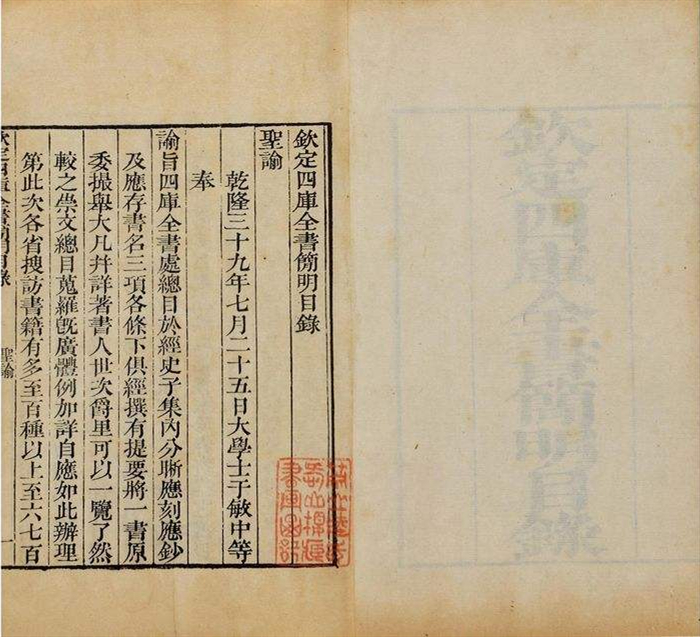 欽定四庫全書簡明目錄
欽定四庫全書簡明目錄
聖諭
乾隆三十九年七月二十五日大學士于敏中等
奉
諭旨四庫全書處總目於經史子集內分晰應刻應鈔
及應存書名三項各條下俱經撰有提要將一書原
委撮舉大凡幷詳著書人世次爵里可以一覽了然
較之崇文總目蒐羅旣廣體例加詳自應如此辦理
第此次各省搜訪書籍有多至百種以上至六七百
欽定四庫全書簡明目錄
聖諭
一